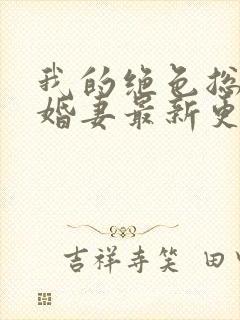 我的绝色总
婚妻最新更
吉祥寺笑 田